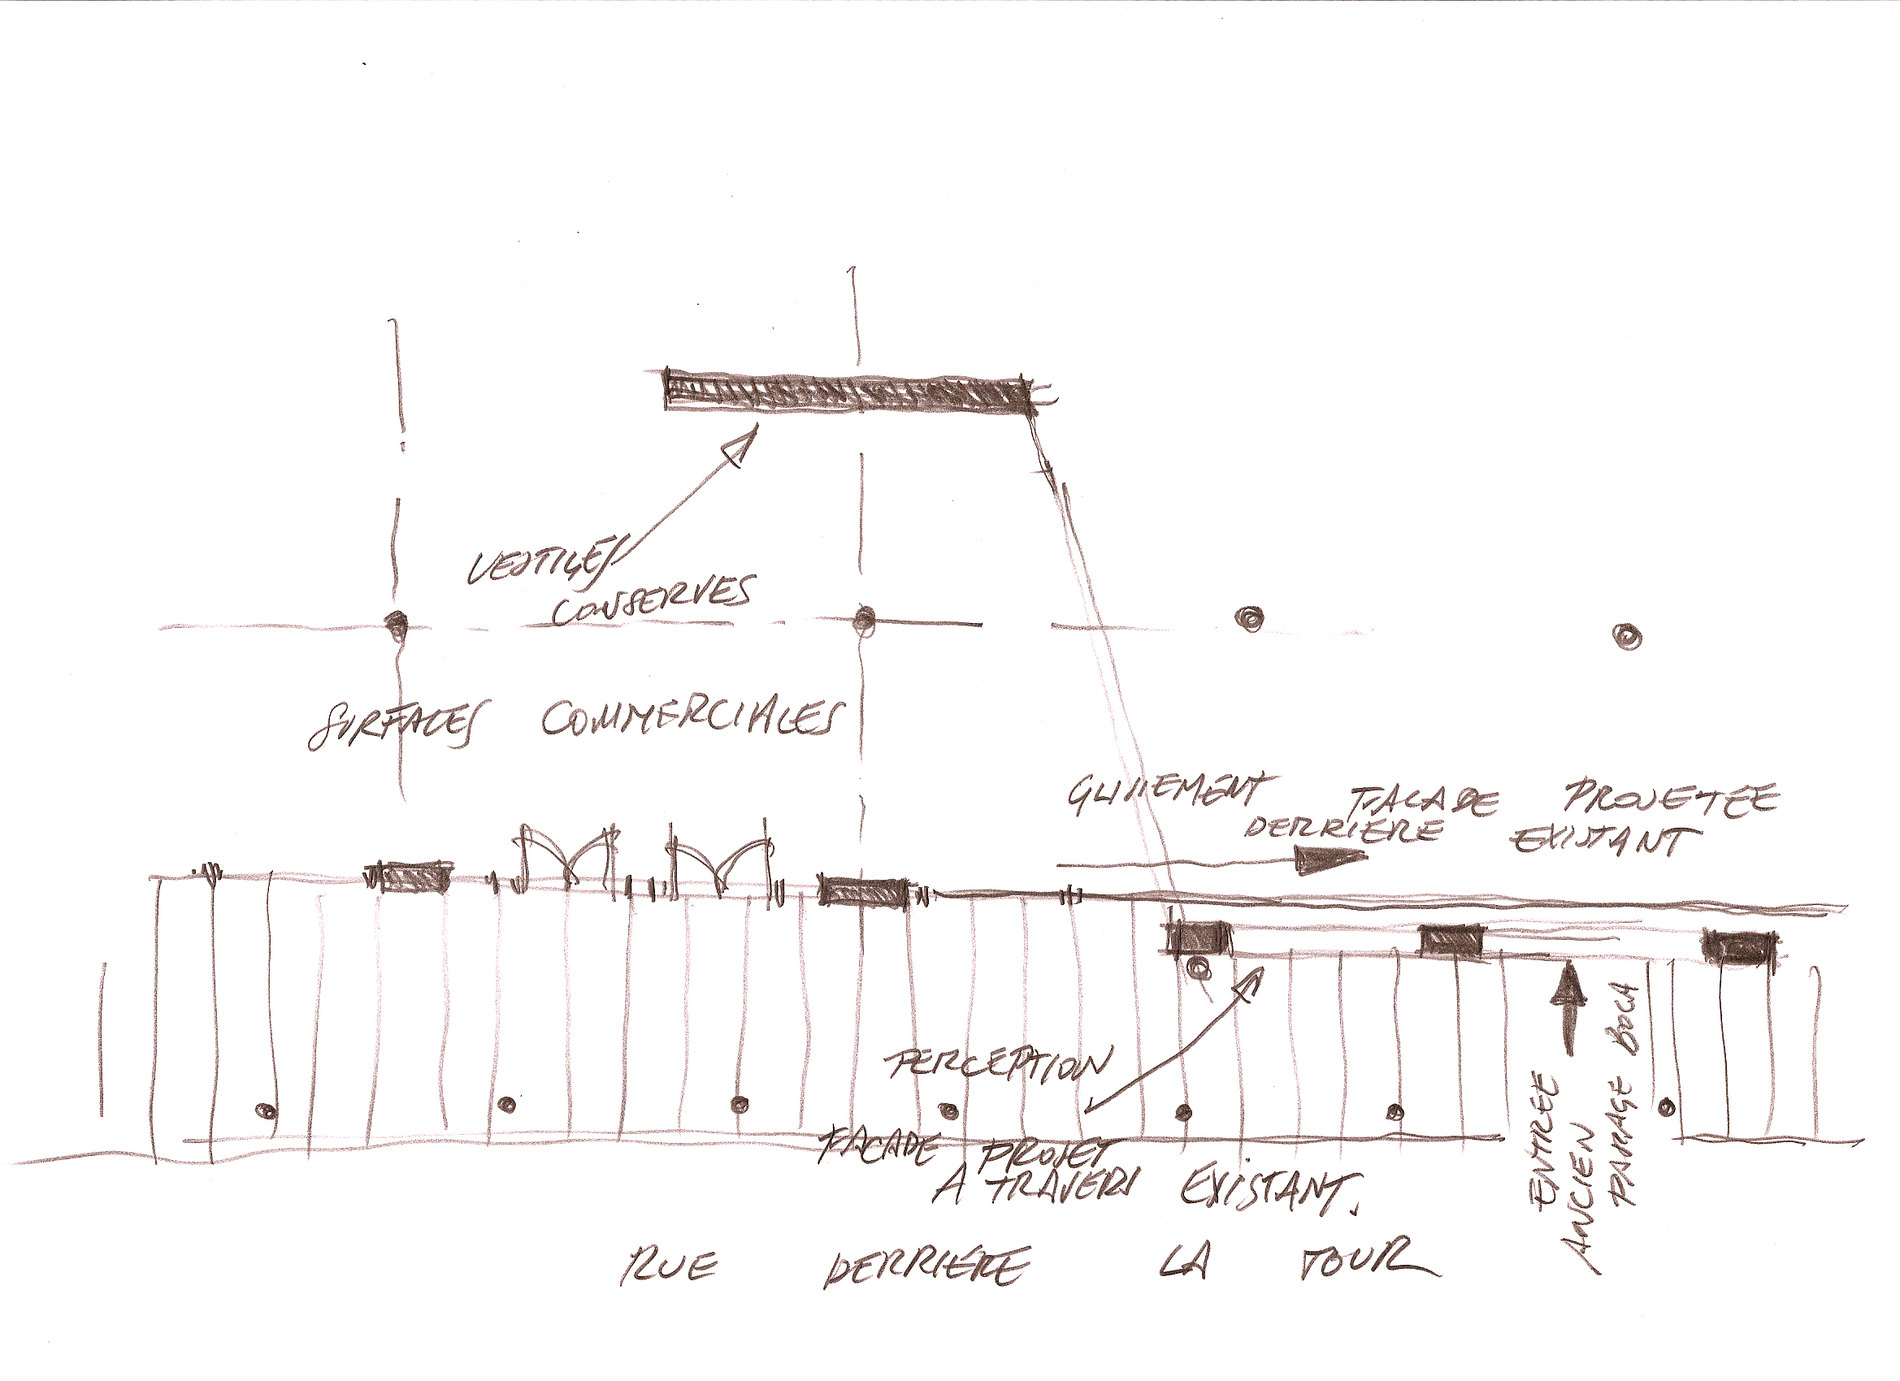 VESTIGES
CONSERVES
SURFACES COMMERCIALES
GLISSEMENT FACADE PROJETEE
DERRIERE EXISTANT
PERCEPTION
FACADE PROJET
A TRAVERS EXISTANT.
ENTREE
ANCIEN
PASSAGE BOCA
RUE DERRIÈRE LA TOUR